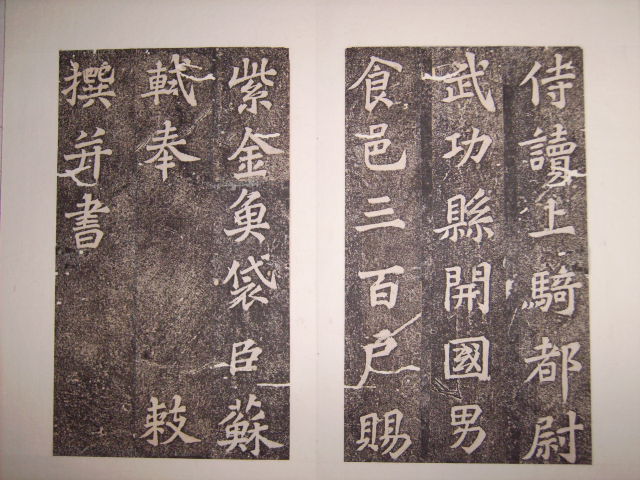 侍讀上騎都尉
武功縣開國男
食邑三百户賜
紫金魚袋臣蘇
軾奉 敕
撰并書